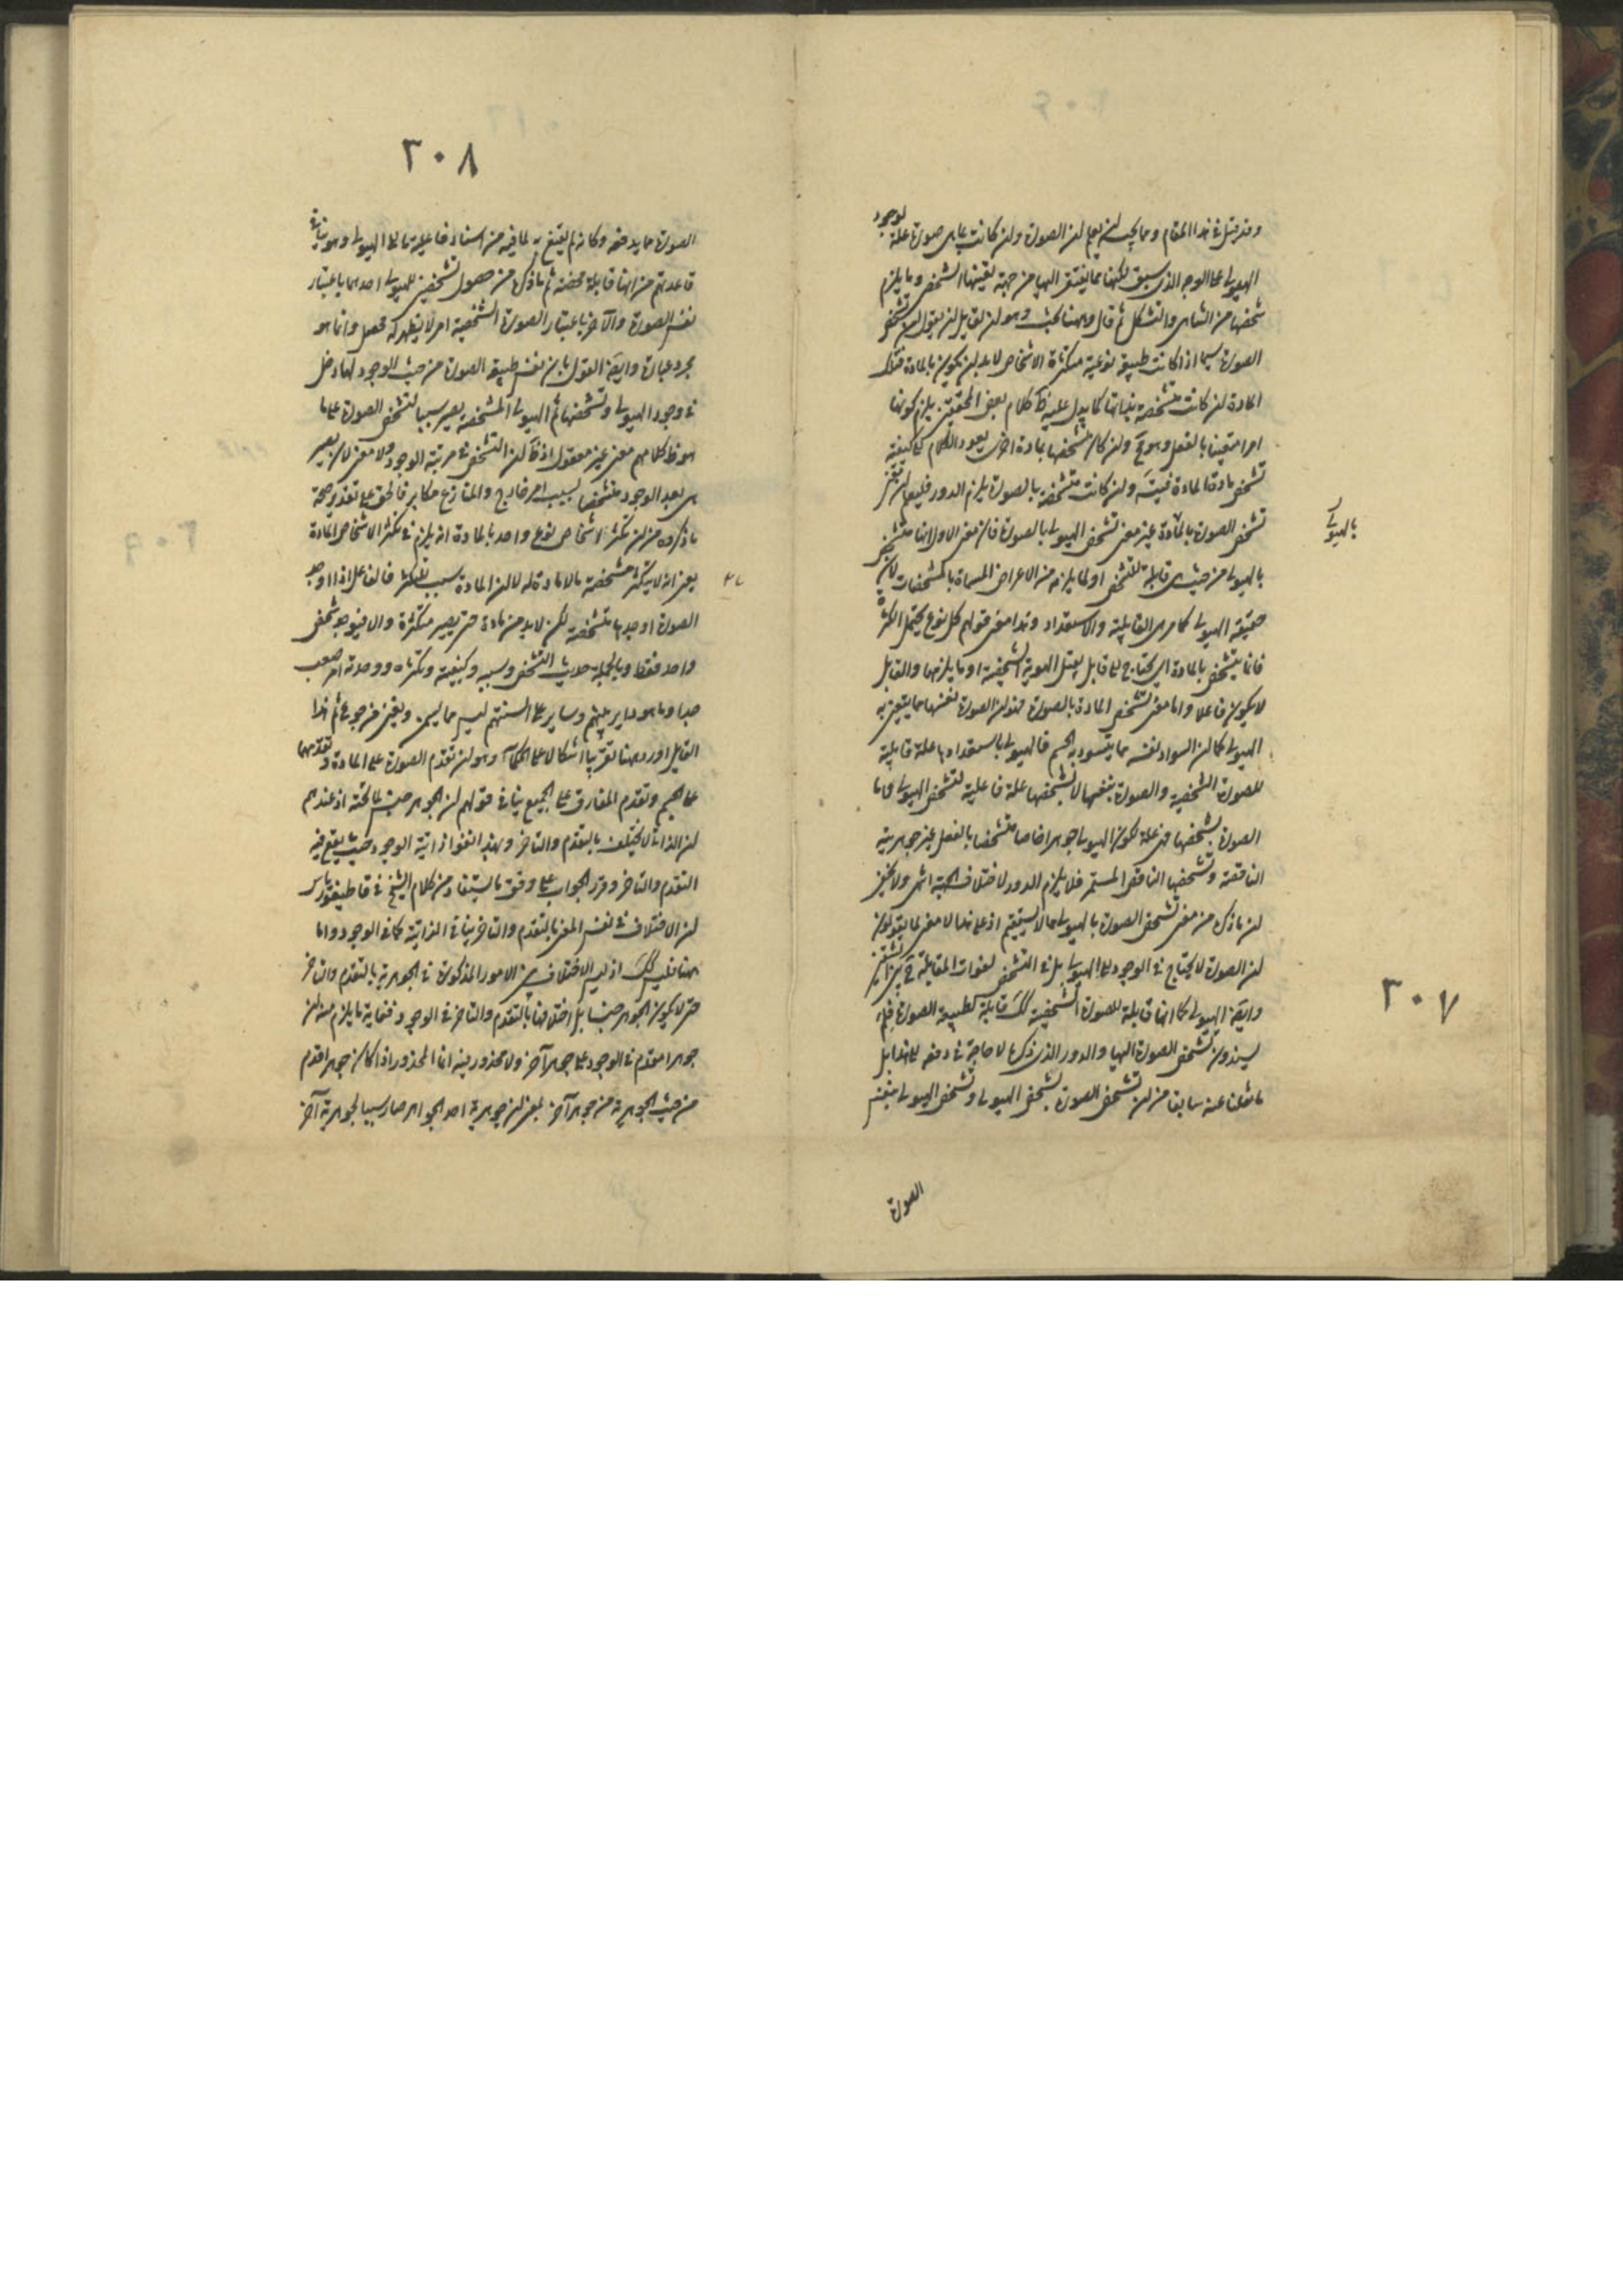 وقد قيل في هذا المقام ومما يجب ان يعلم ان الصورة وان كانت بما هي صورة علة لوجود
الهيولى على الوجه الذي سبق لكنها مما يفتقر اليها من جهة تعينها الشخصي وما يلزم
شخصها من التناهي والتشكل ثم قال وههنا بحث وهو ان لقايل ان يقول ان تشخص
الصورة سيما اذا كانت طبيعة نوعية متكثرة الاشخاص لابد ان يكون بالمادة فتلك
المادة ان كانت متشخصة بذاتها كما يدل عليه ظ كلام بعض المحققين يلزم كونها
امرا متعينا بالفعل وهو مح وان كان تشخصها بمادة اخرى يعود الكلام الى كيفية
تشخص مادة المادة فيتسـ وان كانت متشخصة بالصورة يلزم الدور فليعلم ان معنى
تشخص الصورة بالمادة غير معنى تشخص الهيولى بالصورة فان معنى الاول انها متشخصة
بالهيولى
بالهيولى من حيث هي قابلة للتشخص او لما يلزمه من الاعراض المسماة بالمشخصات لان
حقيقة الهيولى كما مر هي القابلية والاستعداد وهذا معنى قولهم كل نوع يحتمل الكثرة
فانما يتشخص بالمادة اي يحتاج الى قابل يقبل الهوية الشخصية او ما يلزمها والقابل
لا يكون فاعلا واما معنى تشخص المادة بالصورة فهو ان الصورة نفسها مما يتعين به
الهيولى كما ان السواد نفسه مما يتسود به الجسم فالهيولى باستعدادها علة قابلية
للصورة الشخصية والصورة بنفسها لا بشخصها علة فاعلية لتشخص الهيولى واما
الصورة بشخصها فهي علة لكون الهيولى جوهرا خاصا متشخصا بالفعل غير جوهريته
الناقصة وتشخصها الناقص المستمر فلا يلزم الدور لاختلاف الجهة انتهى ولا يخفى
ان ما ذكره من معنى تشخص الصورة بالهيولى مما لا يستقيم اذ على هذا لا معنى لما يقولون
ان الصورة لا يحتاج في الوجود الى الهيولى بل في التشخص لفوات المقابلة ح بين
وايضا الهيولى كما انها قابلة للصورة الشخصية كك قابلة لطبيعة الصورة فلم
يسندون تشخص الصورة اليها والدور الذي ذكره لا حاجة في دفعه الى هذا بل
ما نقلنا عنه سابقا من ان تشخص الصورة بشخص الهيولى وتشخص الهيولى بنفس
الصورة
٣٠٧
٣٠٨
الصورة مما يدفعه وكانه لم يقتنع به لما فيه من اسناد فاعلية ما الى الهيولى وهو ينافي
قاعدتهم من انها قابلة محضة ثم ما ذكره من حصول تشخصين للهيولى احدهما باعتبار
نفس الصورة والآخر باعتبار الصورة الشخصية امر لا يظهر له محصل وانما هو
مجرد عبارة وايضا القول بان نفس طبيعة الصورة من حيث الوجود لها دخل
في وجود الهيولى وتشخصها ثم الهيولى المشخصة يصير سببا لتشخص الصورة على ما
هو ظ كلامهم معنى غير معقول اذ ظ ان التشخص في مرتبة الوجود ولا معنى لان يصير
شيء بعد الوجود متشخصا بسبب امر خارج والمنازع مكابر فالحق على تقدير صحة
ما ذكروه من ان تكثر الاشخاص لنوع واحد بالمادة انه يلزم في تكثر الاشخاص المادة
بمعنى انه لا يتكثر متشخصة ما لا مادة له لا ان المادة سبب للتكثر فالفاعل اذا اوجد
الصورة اوجدها متشخصة لكن لابد من مادة حتى يصير متكثرة والا فيوجد شخص
واحد فقط وبالجملة حديث التشخص وسببه وكيفيته وتكثره ووحدته امر صعب
جدا وما هو داير بينهم وساير على السنتهم ليس مما يسمن ويغني من جوع ثم هذا
القايل اورد ههنا تقريبا اشكالا على الحكماء وهو ان تقدم الصورة على المادة وتقدمهما
على الجسم وتقدم المفارق على الجميع ينافي قولهم ان الجوهر جنس لما تحته اذ عندهم
ان الذاتي لا يختلف بالتقدم والتاخر وبهذا نفوا ذاتية الوجود حيث يقع فيه
التقدم والتاخر وقرر الجواب على وفق ما يستفاد من كلام الشيخ في قاطيغورياس
ان الاختلاف في نفس المعنى بالتقدم والتاخر ينافي الذاتية كما في الوجود واما
ههنا فليس كك اذ ليس الاختلاف بين الامور المذكورة في الجوهرية بالتقدم والتاخر
حتى لا يكون الجوهر جنسا بل اختلافها بالتقدم والتاخر في الوجود فغاية ما يلزم منه ان
جوهرا مقدم في الوجود على جوهر آخر ولا محذور فيه انما المحذور اذا كان جوهر اقدم
من حيث الجوهرية من جوهر آخر بمعنى ان جوهرية احد الجواهر صار سببا لجوهرية آخر